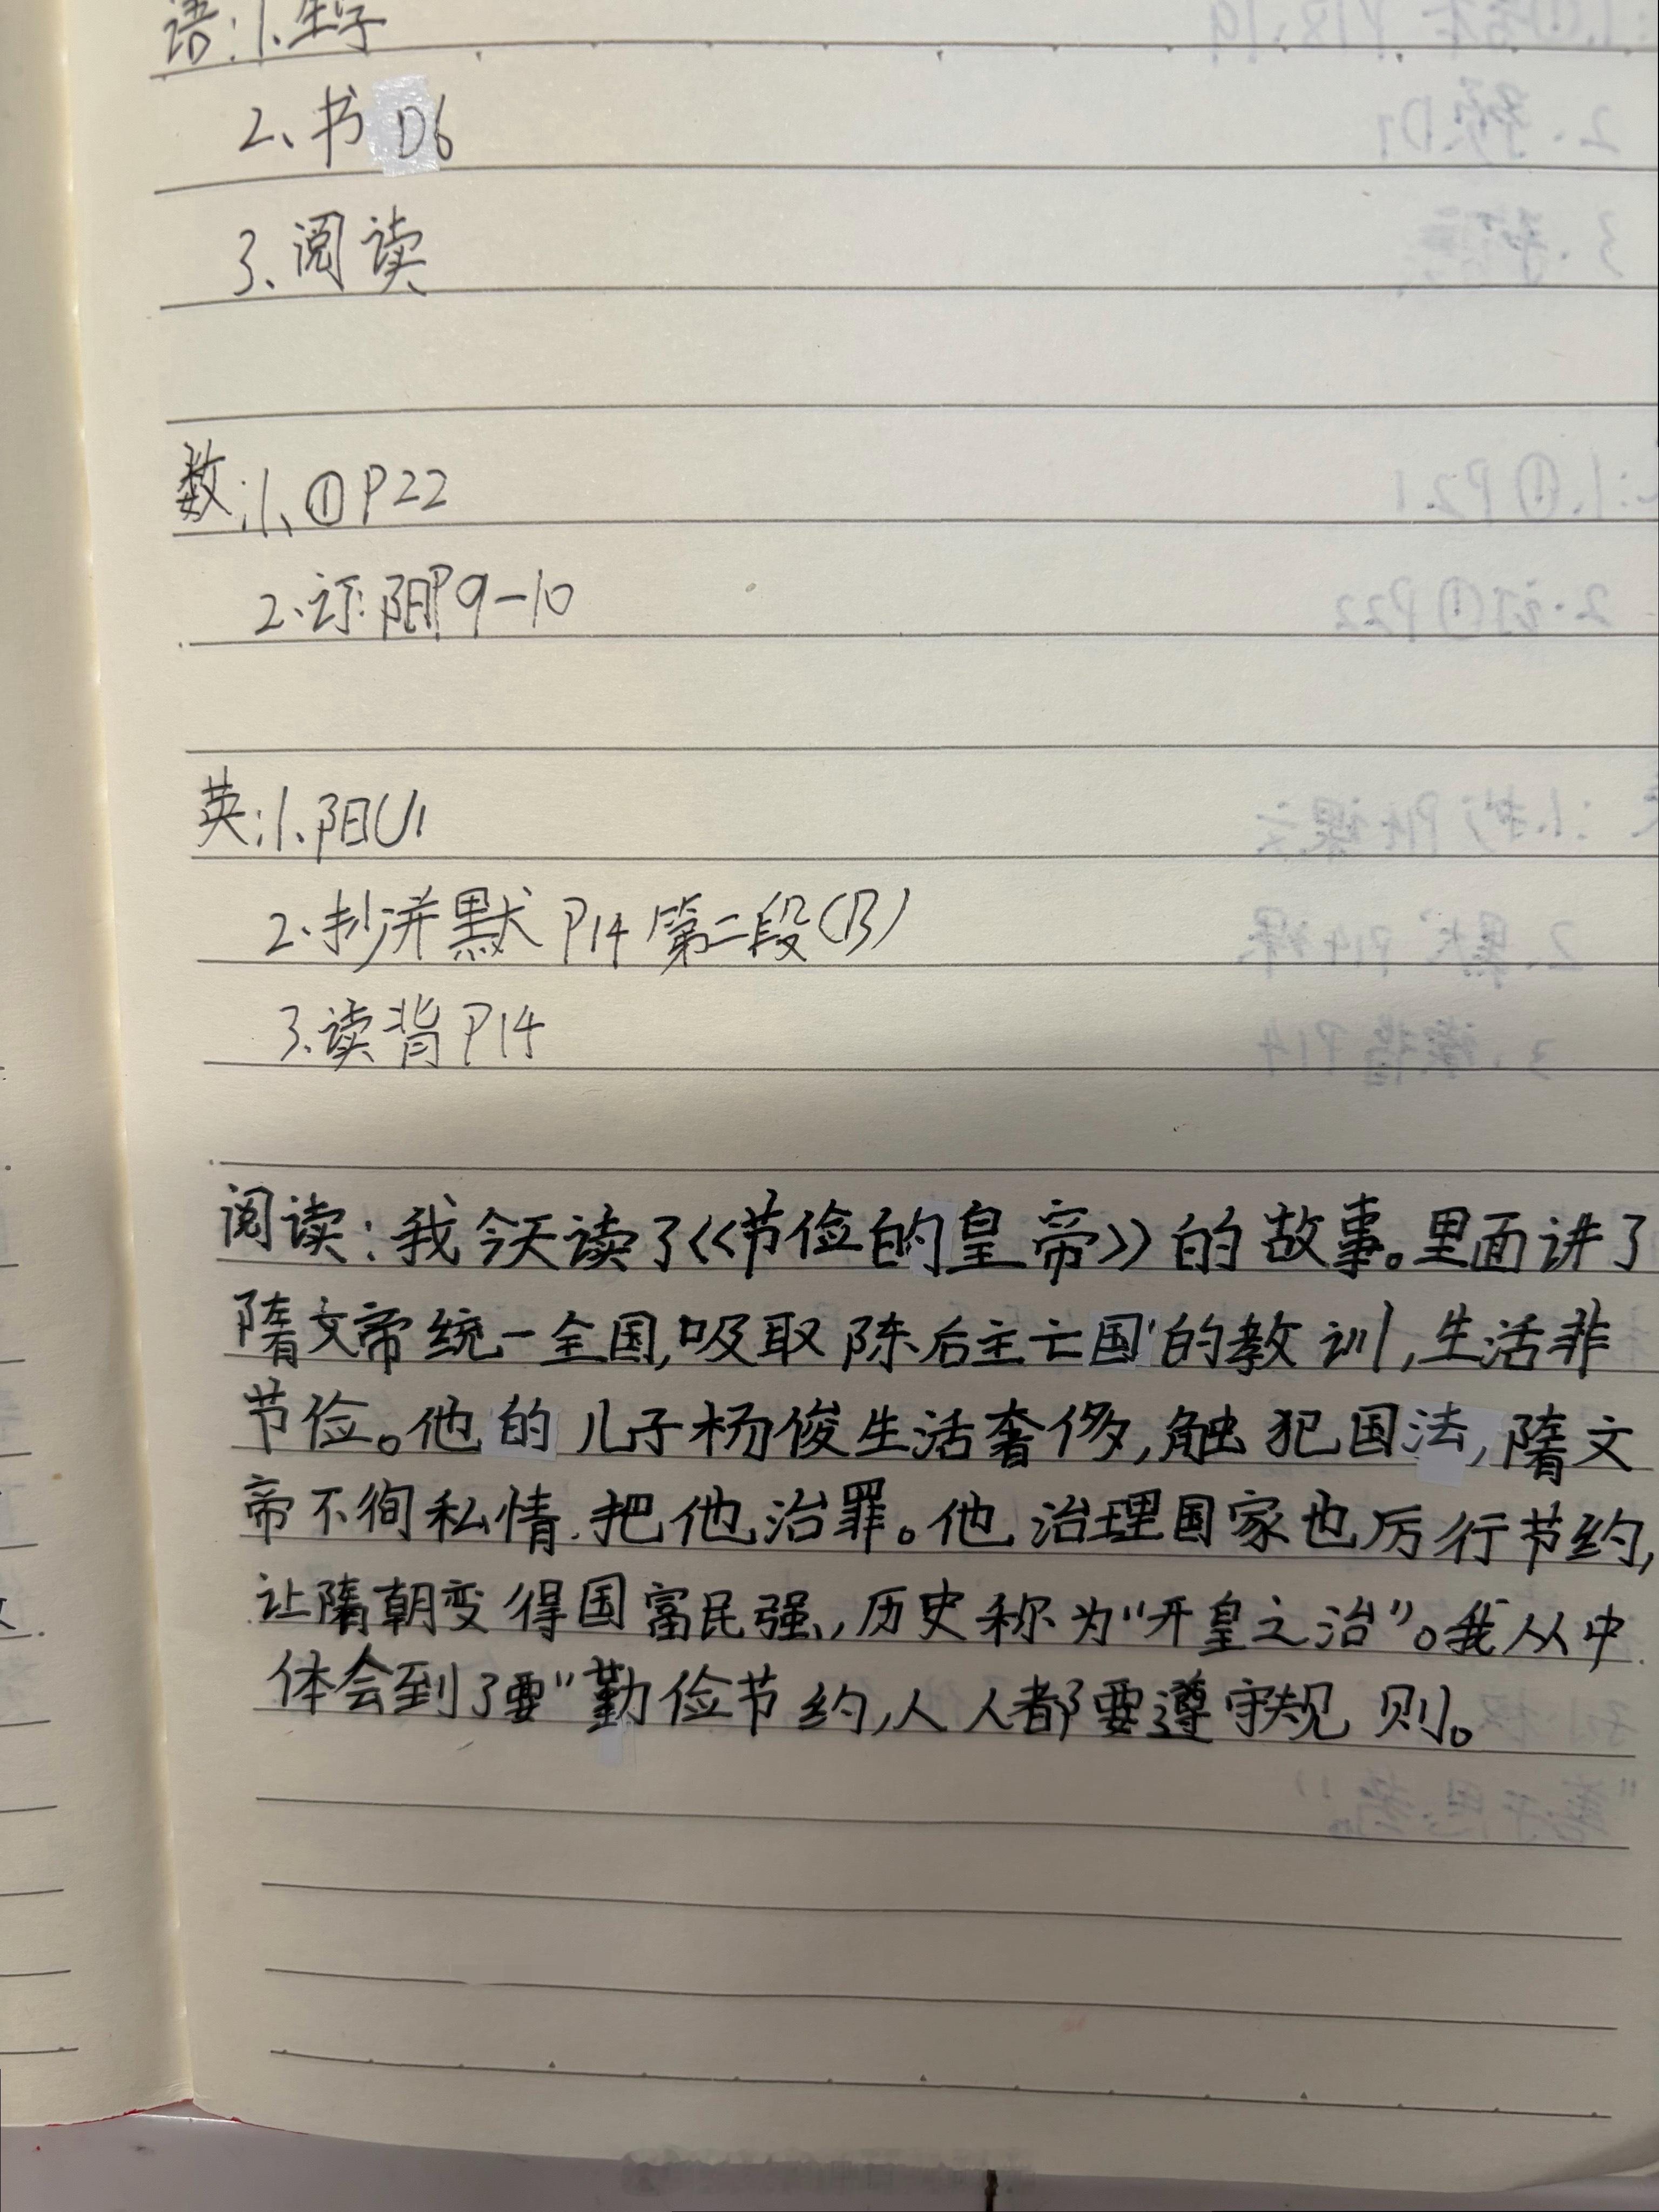 语:1.生字
2、书 D6
3、阅读
数:1、①P22
2.订:阳P9-10
英:1、阳U1
2.抄并默 P14 第二段(B)
3.读背P14
阅读:我今天读了《节俭的皇帝》的故事。里面讲了
隋文帝统一全国,吸取陈后主亡国的教训,生活非
节俭。他的儿子杨俊生活奢侈,触犯国法,隋文
帝不徇私情.把他治罪。他治理国家也厉行节约,
让隋朝变得国富民强,历史称为“开皇之治”。我从中
体会到了要“勤俭节约,人人都要遵守规则。